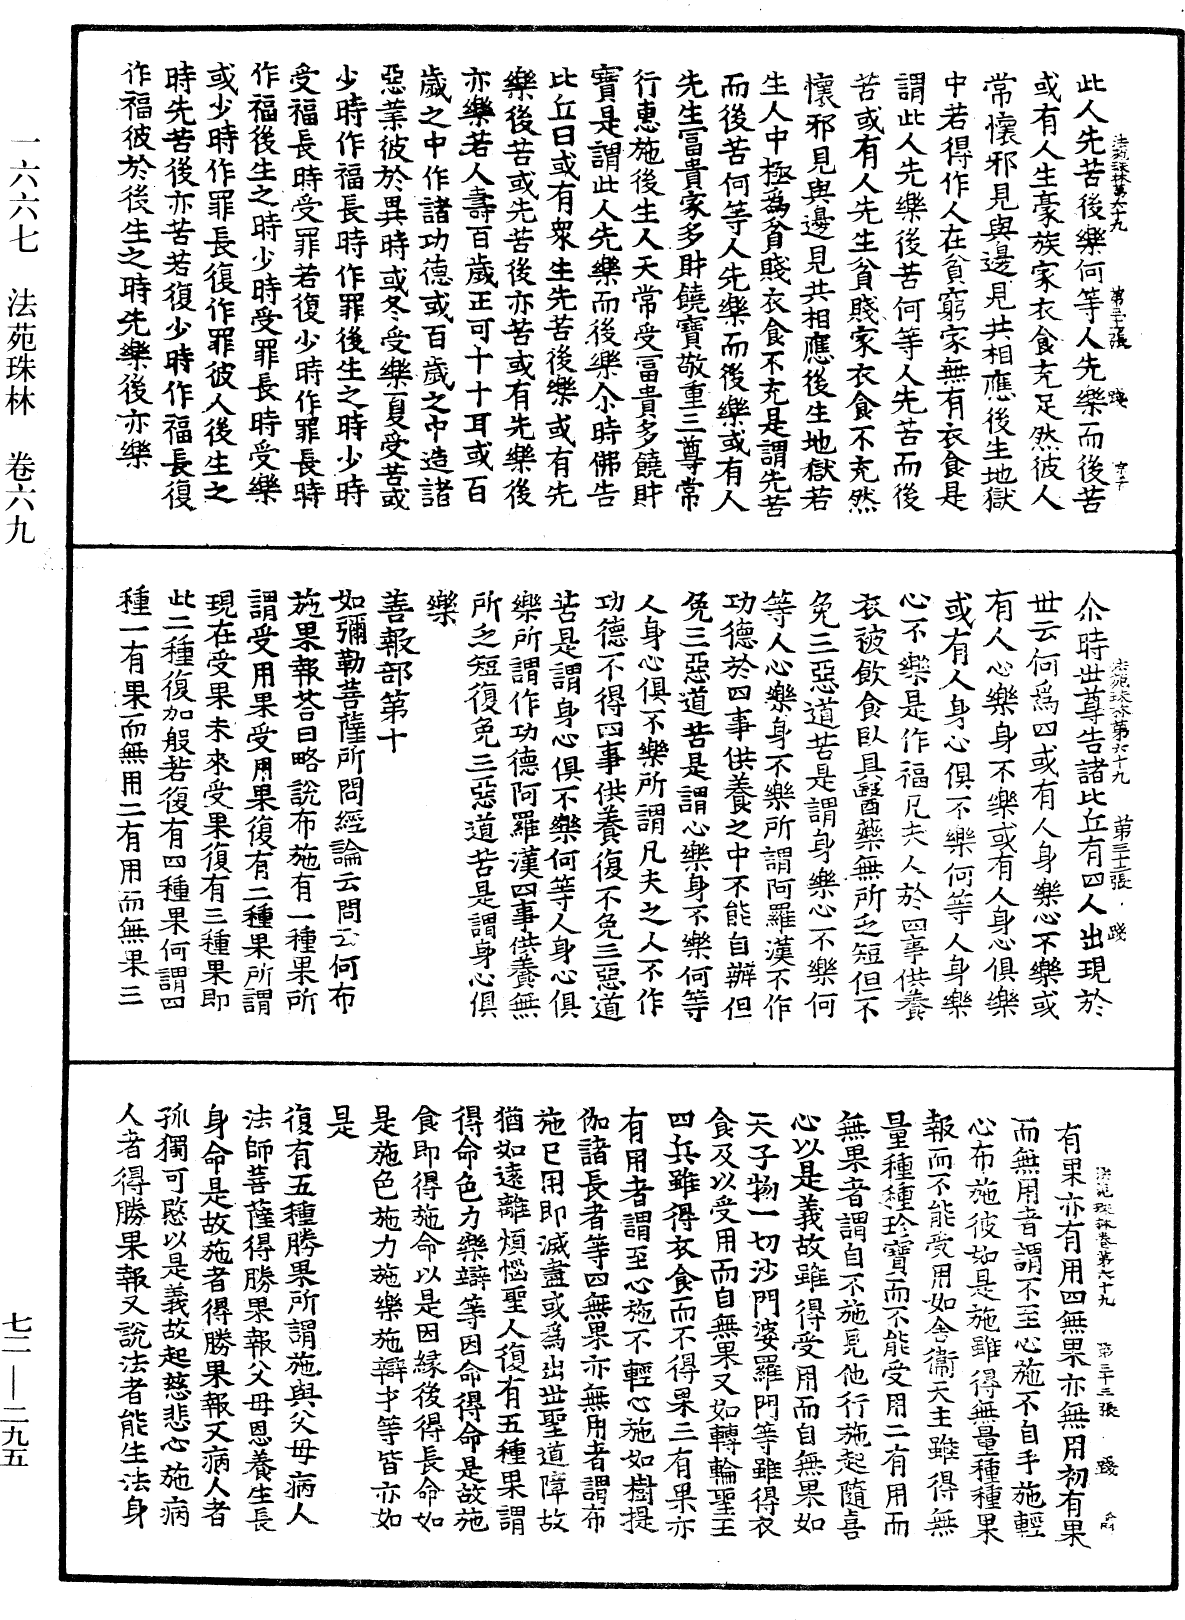 此人先苦後樂何等人先樂而後苦
或有人生豪族家衣食充足然彼人
常懷邪見與邊見共相應後生地獄
中若得作人在貧窮家無有衣食是
謂此人先樂後苦何等人先苦而後
苦或有人先生貧賤家衣食不充然
懷邪見與邊見共相應後生地獄若
生人中極為貧賤衣食不充是謂先苦
而後苦何等人先樂而後樂或有人
先生冨貴家多財饒寶敬重三尊常
行惠施後生人天常受冨貴多饒財
寶是謂此人先樂而後樂尒時佛告
比丘曰或有衆生先苦後樂或有先
樂後苦或先苦後亦苦或有先樂後
亦樂若人壽百歲正可十十耳或百
歲之中作諸功德或百歲之中造諸
惡業彼於異時或冬受樂夏受苦或
少時作福長時作罪後生之時少時
受福長時受罪若復少時作罪長時
作福後生之時少時受罪長時受樂
或少時作罪長復作罪彼人後生之
時先苦後亦苦若復少時作福長復
作福彼於後生之時先樂後亦樂
法苑珠林第六十九　第三十張　踐
尒時世尊告諸比丘有四人出現於
世云何為四或有人身樂心不樂或
有人心樂身不樂或有人身心俱樂
或有人身心俱不樂何等人身樂
心不樂是作福凡夫人於四事供養
衣被飲食卧具醫藥無所乏短但不
免三惡道苦是謂身樂心不樂何
等人心樂身不樂所謂阿羅漢不作
功德於四事供養之中不能自辦但
免三惡道苦是謂心樂身不樂何等
人身心俱不樂所謂凡夫之人不作
功德不得四事供養復不免三惡道
苦是謂身心俱不樂何等人身心俱
樂所謂作功德阿羅漢四事供養無
所乏短復免三惡道苦是謂身心俱
樂
善報部第十
如彌勒菩薩所問經論云問云何布
施果報荅曰略說布施有一種果所
謂受用果受用果復有二種果所謂
現在受果未來受果復有三種果即
此二種復加般若復有四種果何謂四
種一有果而無用二有用而無果三
法苑珠林第六十九　第三十二張　踐
有果亦有用四無果亦無用初有果
而無用者謂不至心施不自手施輕
心布施彼如是施雖得無量種種果
報而不能受用如舍衞天主雖得無
量種種珍寶而不能受用二有用而
無果者謂自不施見他行施起隨喜
心以是義故雖得受用而自無果如
天子物一切沙門婆羅門等雖得衣
食及以受用而自無果又如轉輪聖王
四兵雖得衣食而不得果三有果亦
有用者謂至心施不輕心施如樹提
伽諸長者等四無果亦無用者謂布
施已用即滅盡或為出世聖道障故
猶如遠離煩惱聖人復有五種果謂
得命色力樂辯等因命得命是故施
食即得施命以是因緣後得長命如
是施色施力施樂施辯才等皆亦如
是
復有五種勝果所謂施與父母病人
法師菩薩得勝果報父母恩養生長
身命是故施者得勝果報又病人者
孤獨可愍以是義故起慈悲心施病
人者得勝果報又說法者能生法身
法苑珠林卷第六十九　第三十三張　踐
一六六七　法苑珠林　卷六九
七二—二九五